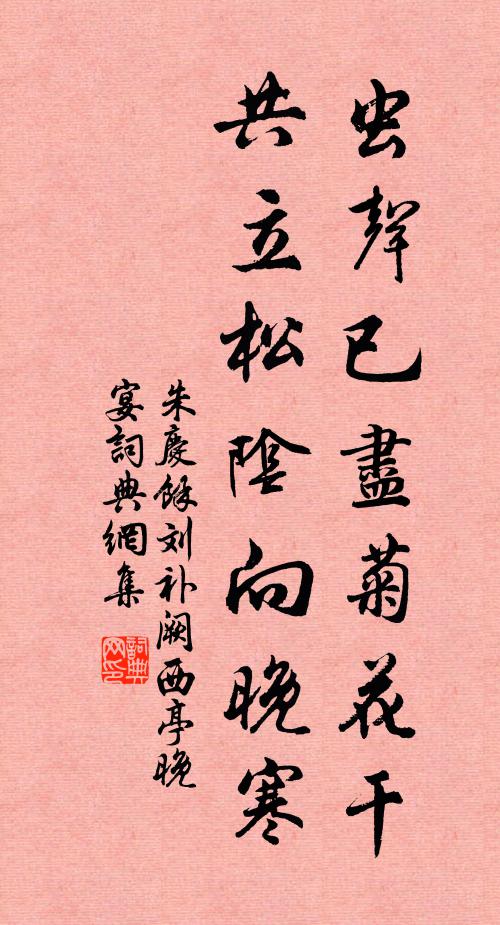 虫聲已盡菊花干
共立松陰向晚寒
朱慶餘刘补阙西亭晚
宴詞典網集
詞典網印